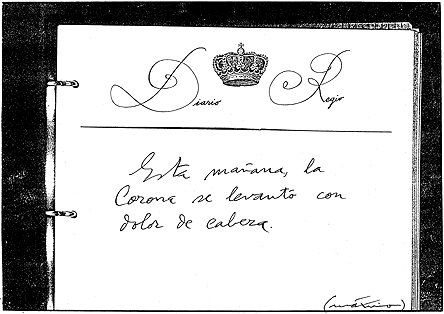 Diario Regio
Esta mañana, la
Corona se levantó con
dolor de cabeza.
(máximo)